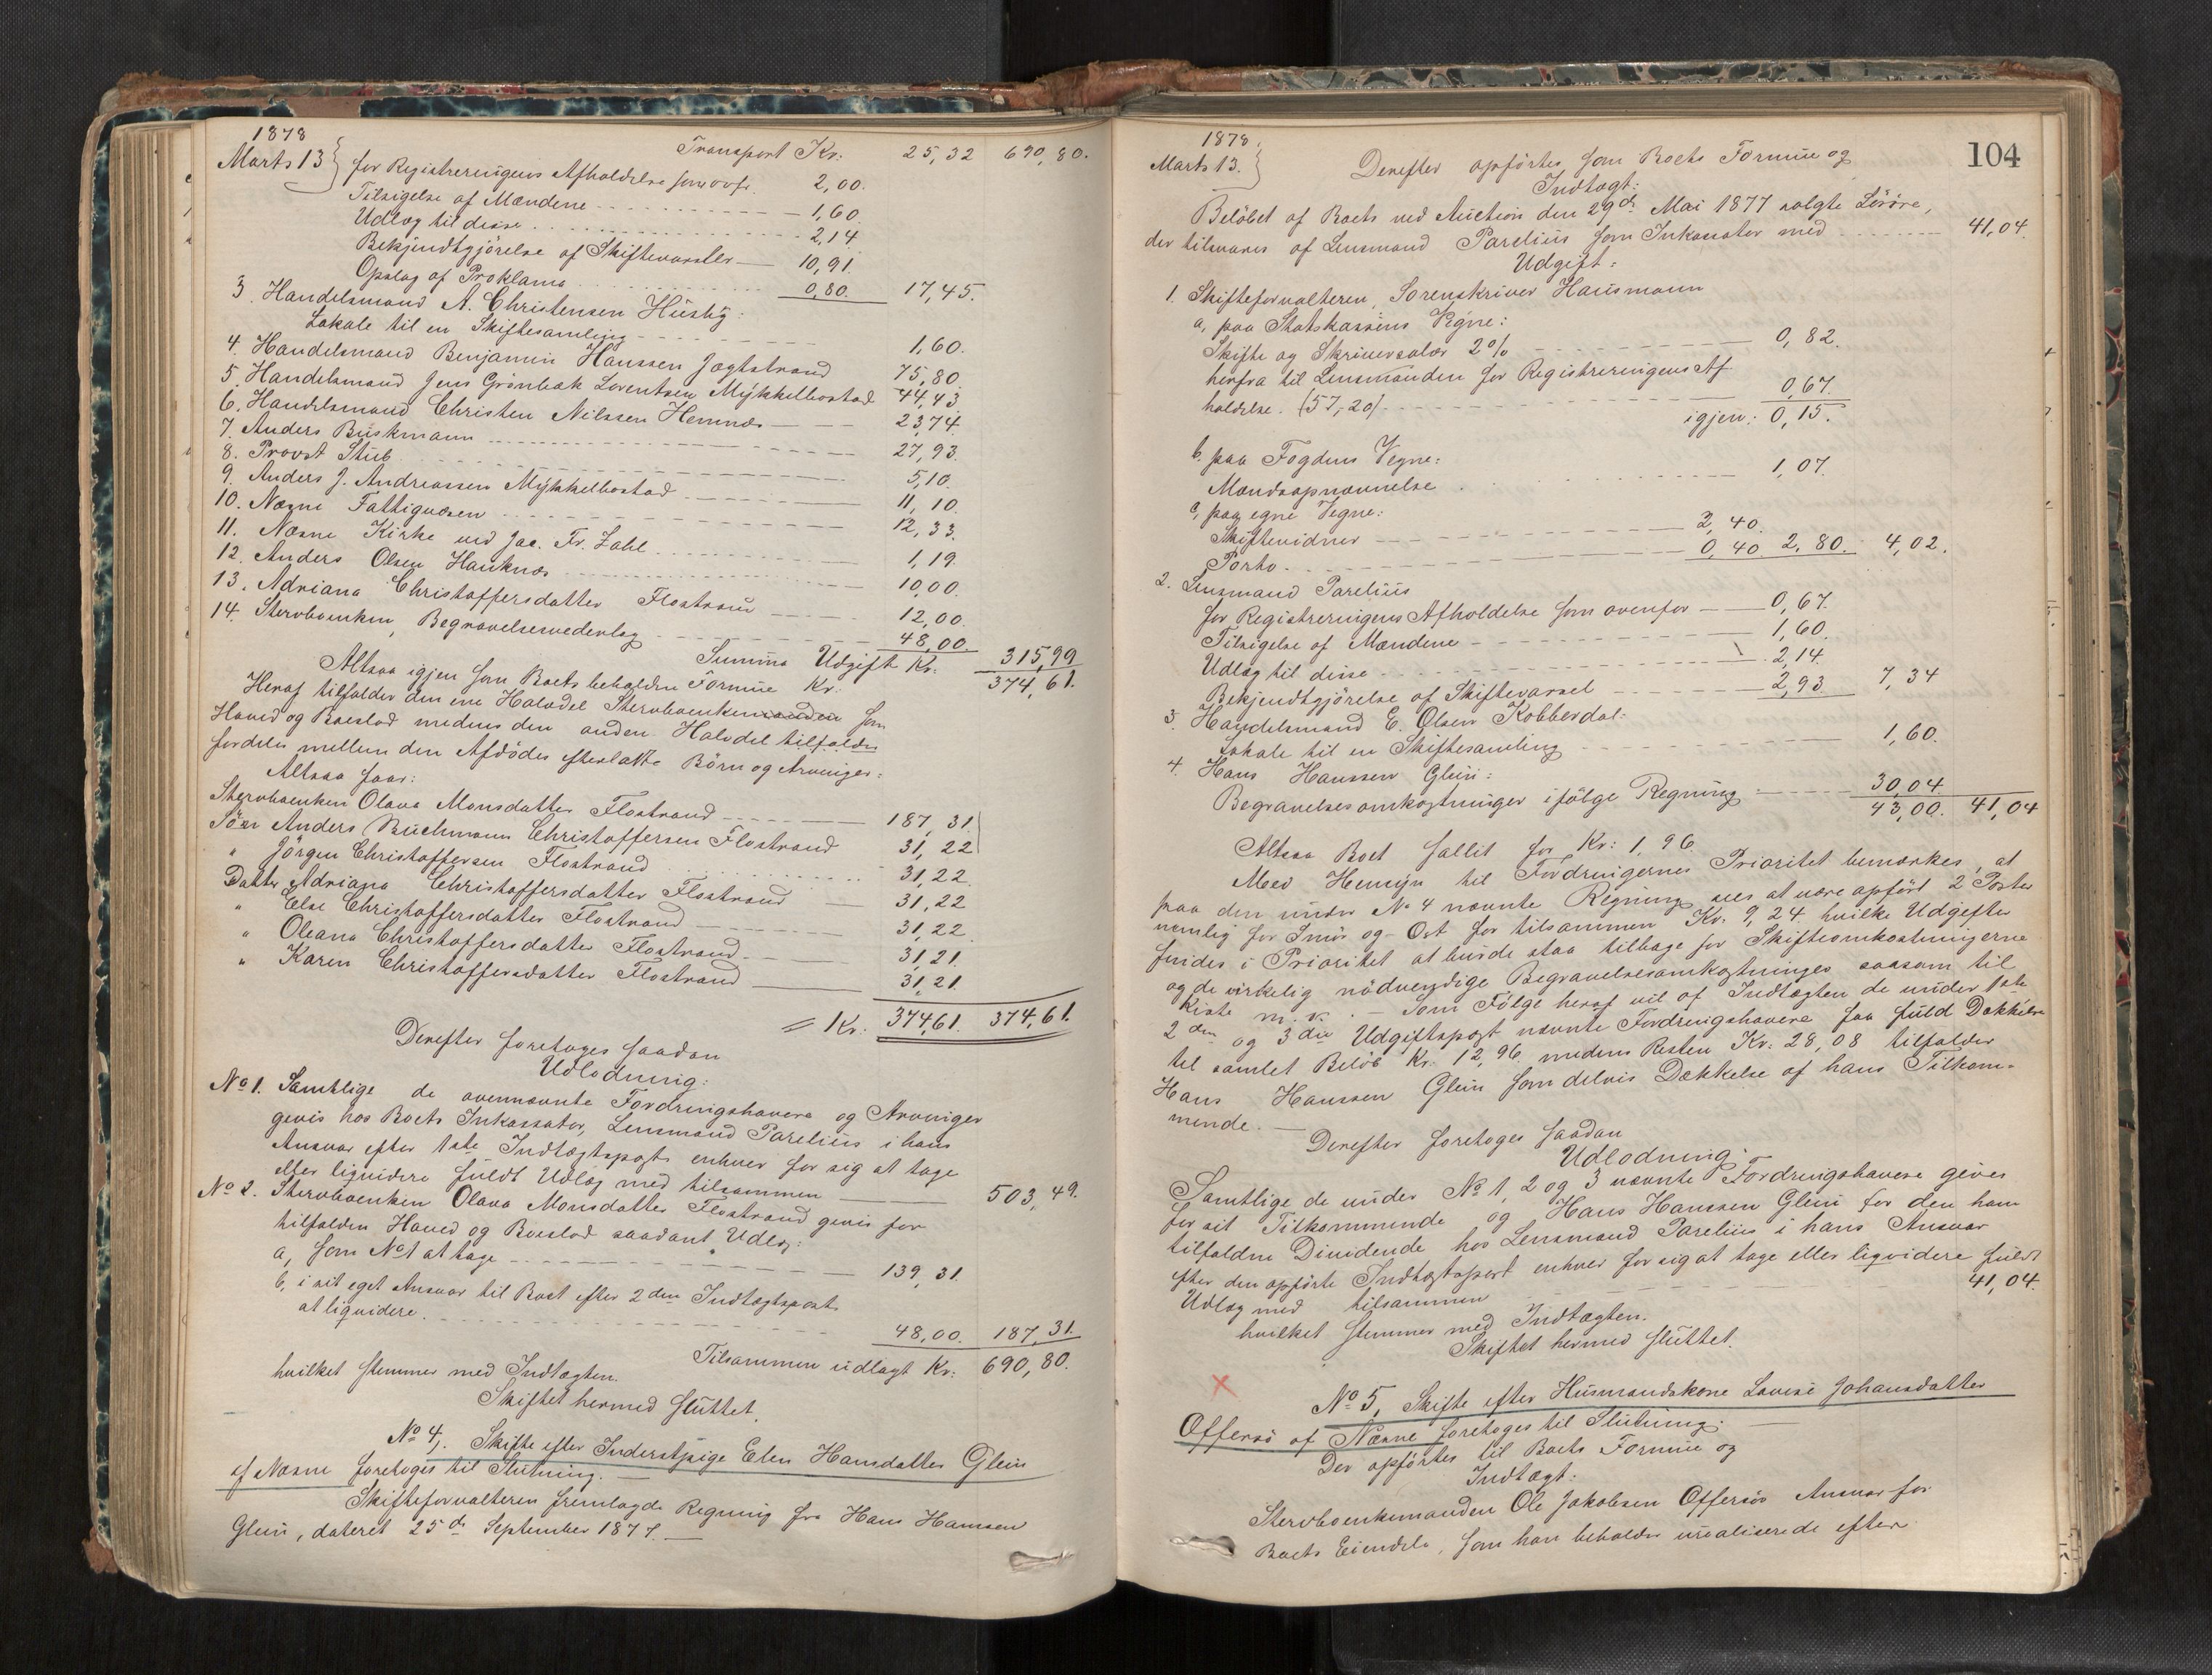 1878
Marts 13
Transport Kr: 25,32 690,80.
for Registreringens Afholdelse som ovfr. 2,00.
Tilsigelse af Mændene 1,60.
Udlæg til disse 2,14.
Bekjendtgjörelse af Skiftevarsler 10,91.
Opslag af Proklama 0,80. 17,45.
3. Handelsmand A. Christensen Husby:
Lokale til en Skiftesamling 1,60.
4. Handelsmand Benjamin Hanssen Jægtstrand 75,80.
5. Handelsmand Jens Grönbæk Lorentsen Mykkelbostad 44,43
6. Handelsmand Christen Nilssen Hemnæs 23,74.
7. Anders Buskmann 27,93.
8. Provst Stub 5,10.
9. Anders J. Andreassen Mykkelbostad 11,10.
10. Næsne Fattigvæsen 12,33.
11. Næsne Kirke ved Jac. Fr. Zahl 1,19.
12. Anders Olsen Hauknæs 10,00.
13. Adriana Christoffersdatter Flostrand 12,00.
14. Stervboenken, Begravelsesvederlag 48,00.
Summa Udgift Kr. 315,99
Altsaa igjen som Boets beholdne Formue Kr: 374,61.
Heraf tilfalder den ene Halvdel Stervboenkemanden som
Hoved og Boeslod medens den anden Halvdel tilfalder
fordeles mellem den Afdödes efterlatte Börn og Arvinger:
Altsaa faar:
Stervboenken Olava Monsdatter Flostrand 187,31.
Sön Anders Buchmann Christoffersen Flostrand 31,22
" Jörgen Christoffersen Flostrand 31,22
Datter Adriana Christoffersdatter Flostrand 31,22
" Else Christoffersdatter Flostrand 31,22.
" Oleana Christoffersdatter Flostrand 31,21.
" Karen Christoffersdatter Flostrand 31,21.
= Kr: 374,61. 374,61.
Derefter foretoges saadan
Udlodning:
No 1. Samtlige de ovennævnte Fordringshavere og Arvinger
gives hos Boets Inkassator, Lensmand Parelius i hans
Ansvar efter 1ste Indtægtspost enhver for sig at tage
eller liqvidere fuldt Udlæg med tilsammen 503,49.
No 2. Stervboenken Olava Monsdatter Flostrand gives for
tilfalden Hoved og Boeslod saadant Udlæg:
a, som No 1 at tage 139,31.
b, i sit eget Ansvar til Boet efter 2den Indtægtspost
at liqvidere. 48,00. 187,31.
Tilsammen udlagt Kr: 690,80.
hvilket stemmer med Indtægten.
Skiftet hermed sluttet.
No 4, Skifte efter Inderstpige Elen Hansdatter Glein
af Næsne foretoges til Slutning.
Skifteforvalteren fremlagde Regning fra Hans Hanssen
Glein, dateret 25de September 1877.
104
1878.
Marts 13.
Derefter opförtes som Boets Formue og
Indtægt:
Belöbet af Boets ved Auction den 29de Mai 1877 solgte Lösöre,
der tilsvares af Lensmand Parelius som Inkassator med 41,04.
Udgift:
1. Skifteforvalteren, Sorenskriver Hausmann
a, paa Statskassens Vegne:
Skifte og Skriversalær 2% 0,82.
herfra til Lensmanden for Registreringens Af
holdelse. (57,20) 0,67.
igjen: 0,15.
b. paa Fogdens Vegne:
Mændsopnævnelse 1,07.
c, paa egne Vegne:
Skiftevidner 2,40.
Porto. 0,40 2,80. 4,02.
2. Lensmand Parelius
for Registreringens Afholdelse som ovenfor 0,67.
Tilsigelse af Mændene 1,60.
Udlæg til disse 2,14.
Bekjendtgjörelse af Skiftevarsel 2,93 7,34
3. Handelsmand E. Olsen Kobberdal:
Lokale til en Skiftesamling 1,60.
4. Hans Hanssen Glein:
Begravelsesomkostninger ifölge Regning 30,04.
43,00. 41,04
Altsaa Boet fallit for Kr: 1,96.
Med Hensyn til Fordringernes Prioritet bemærkes, at
paa den under No 4 nævnte Regning sees at være opfört 2 Poster
nemlig for Smör og Ost for tilsammen Kr. 9,24. hvilke Udgifter
findes i Prioritet at burde staa tilbage for Skifteomkostningerne
og de virkelig nödvendige Begravelsesomkostninger saasom til
Kiste m. v. - Som Fölge heraf vil af Indtægten de under 1ste
2den og 3die Udgiftspost nævnte Fordringshavere faa fuld Dækkelse
til samlet Belöb Kr. 12,96. medens Resten Kr: 28,08 tilfalder
Hans Hanssen Glein som delvis Dækkelse af hans Tilkom-
mende.
Derefter foretoges saadan
Udlodning:
Samtlige de under No 1, 2 og 3 nævnte Fordringshavere gives
for sit Tilkommende og Hans Hanssen Glein for den ham
tilfaldne Dividende hos Lensmand Parelius i hans Ansvar
efter den opförte Indtægtspost enhver for sig at tage eller liqvidere fuldt
Udlæg med tilsammen 41,04.
hvilket stemmer med Indtægten.
Skiftet hermed sluttet.
No 5, Skifte efter Husmandskone Lovise Johansdatter
Offersö af Næsne foretoges til Slutning:
Der opförtes til Boets Formue og
Indtægt:
Stervboenkemanden Ole Jakobsen Offersös Ansvar for
Boets Eiendele, som han beholder urealiserede efter